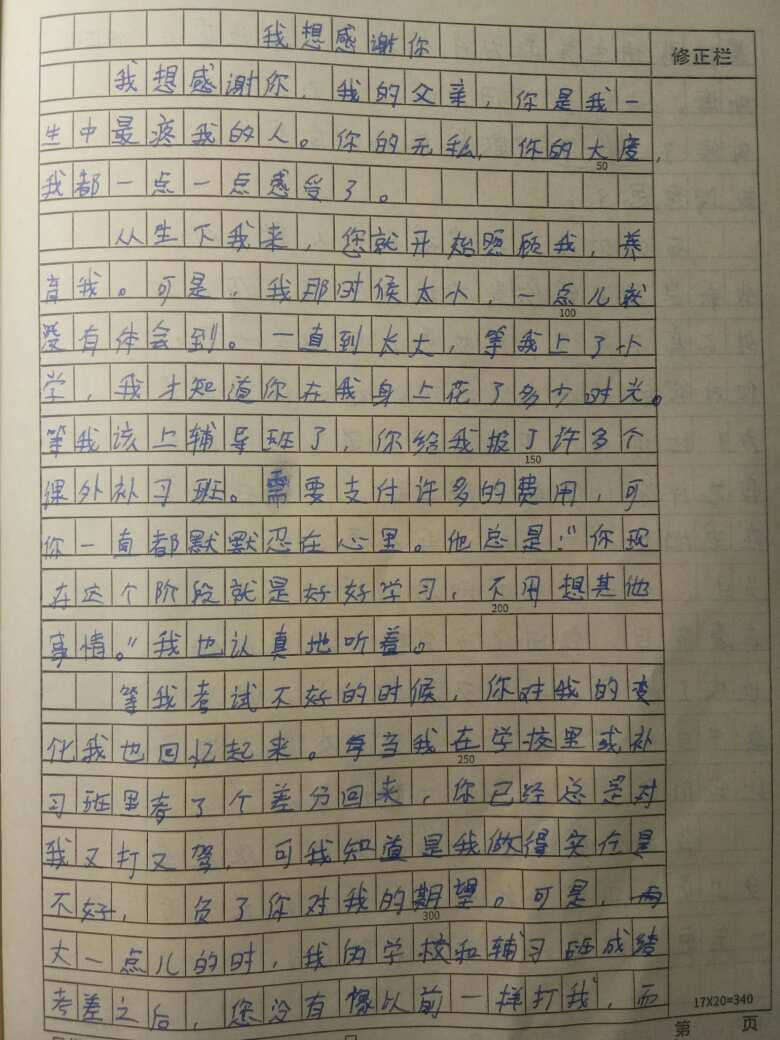 我想感谢你
修正栏
我想感谢你，我的父亲，你是我一
生中最疼我的人。你的无私，你的大度，
50
我都一点一点感受了。
从生下我来，您就开始照顾我，养
育我。可是，我那时候太小，一点儿就
100
没有体会到。一直到长大，等我上了小
学，我才知道你在我身上花了多少时光。
等我该上辅导班了，你给我报了许多个
150
课外补习班。需要支付许多的费用，可
你一直都默默忍在心里。他总是：“你现
在这个阶段就是好好学习，不用想其他
200
事情。”我也认真地听着。
等我考试不好的时候，你对我的变
化我也回忆起来。每当我在学校里或补
250
习班里考了个差分回来，你已经总是对
我又打又骂，可我知道是我做得实在是
不好，负了你对我的期望。可是，
300
大一点儿的时，我的学校和辅习班成绩
考差之后，您没有像以前一样打我，而
17X20=340
第 页